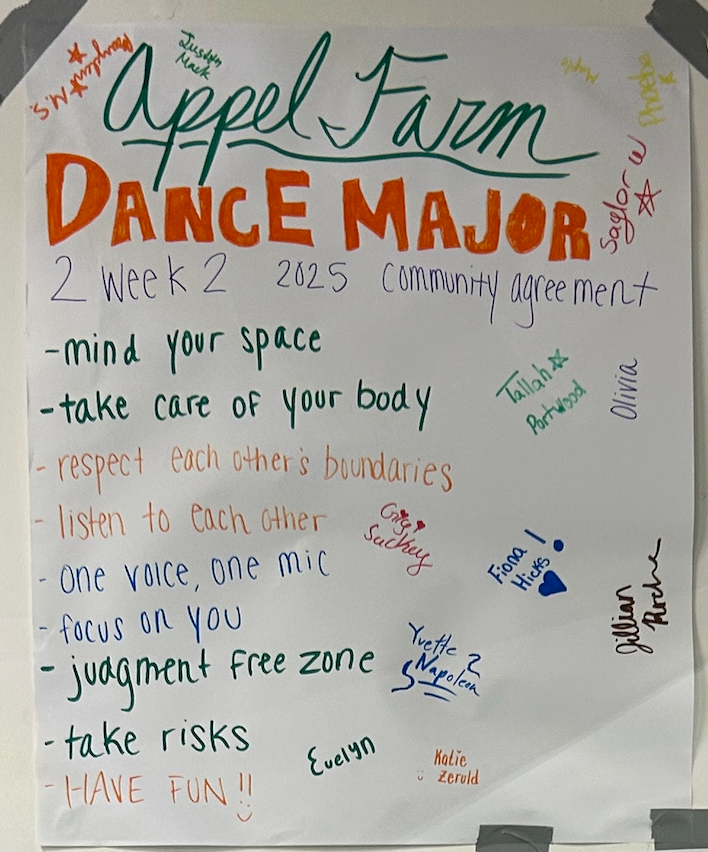 Appel Farm
DANCE MAJOR
2 week 2 2025 community agreement
-mind your space
-take care of your body
- respect each other's boundaries
- listen to each other
- one voice, one mic
- focus on you
- judgment free zone
- take risks
- HAVE FUN!!
Justin
Mack
Phoebe
Saylor W
Tallah
Portwood
Olivia
Fiona
Hicks
Jillian
Roche
Yvette
Napoleon
Evelyn
Katie
Zerold